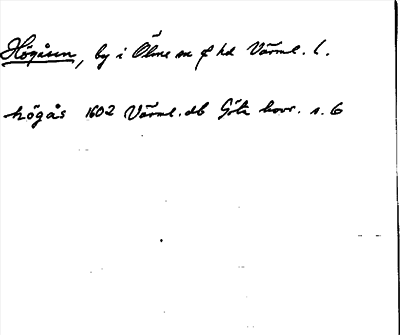 Högåsen, by i Ölme sn o hd Värml. l.
högås 1602 Värml. db Göta hovr. s. 6